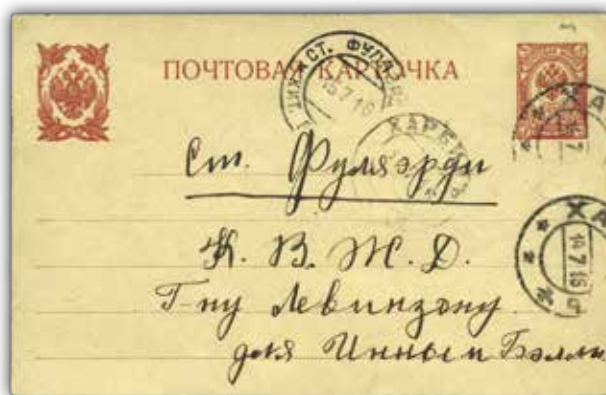 ПОЧТОВАЯ КАРТОЧКА
СТ. ФУЛ
15.7.16
ХАРБИ
ХА
14 7 16
Ст. Фуляэрди
К. В. Ж. Д.
Г-ну Левинзону
для Инны и Бэллы